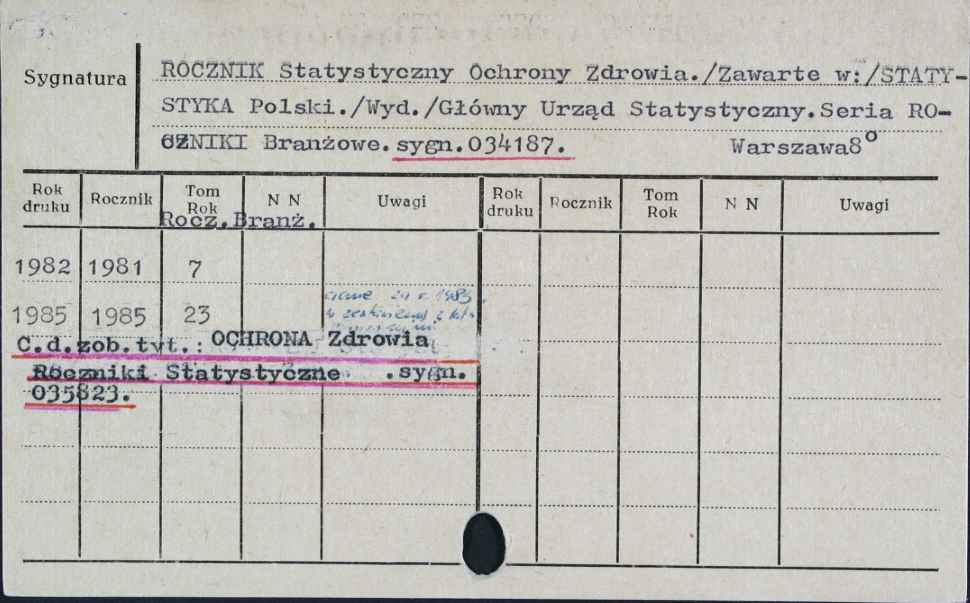 Sygnatura
ROCZNIK Statystyczny Ochrony Zdrowia./Zawarte w:/STATY-
STYKA Polski./Wyd./Główny Urząd Statystyczny.Seria RO-
CZNIKI Branżowe. sygn.034187. Warszawa8°
Rok druku Rocznik Tom Rok N N Uwagi Rok druku Rocznik Tom Rok N N Uwagi
Rocz.Branż.
1982 1981 7
1985 1985 23
1985
C.d.zob.tyt.: OCHRONA Zdrowia
Roczniki Statystyczne .sygn.
035823.